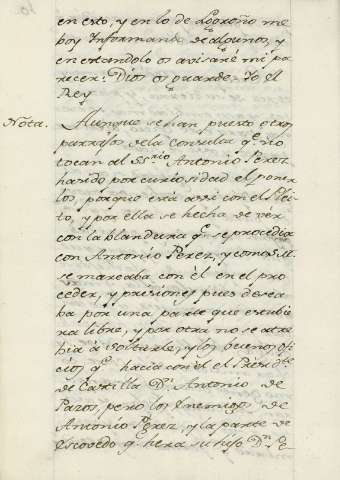 en esto, y en lo de Logroño me
boy Informando de algunos, y
en estandolo os avisaré mi pa
recer: Dios os guarde. Yo el
Rey
Nota. Aunque se han puesto otros
parrafos de la consulta q.e no
tocan al SS.rio Antonio Perez
ha sido por curiosidad el poner
los, porque está assi con el Plei-
to, y por ella se hecha de vér
con la blandura q.e se procedia
con Antonio Perez, y como S.M.
se mareaba con él en el pro
ceder, y prisiones pues desea
ba por una parte que estubie
ra libre, y por otra no se atre
bia á soltarle, y los buenos ofi
cios q.e hacia con el el Presid.te
de Castilla D.n Antonio de
Pazos, pero los Enemigos de
Antonio Perez, y la parte de
Escovedo q.e hera su hijo D.n